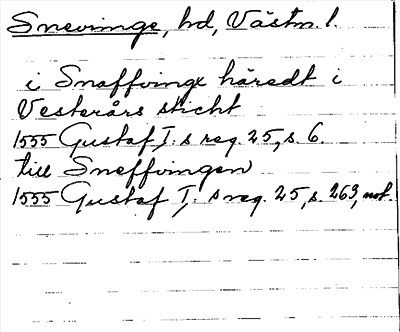 Snevringe, hd, Västm. l.
i Snaffvinge häredt i
Vesterårs sticht
1555 Gustaf I:s reg. 25, s. 6.
till Sneffvingen
1555 Gustaf I:s reg. 25, s. 263, not.